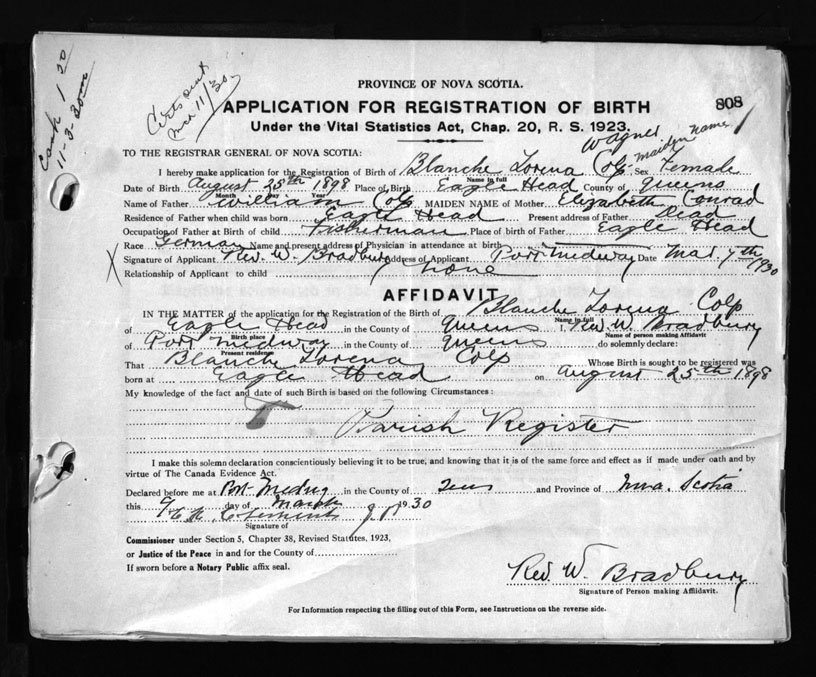 Cash 1 50
11-3-30
Certs sent
Mch 11/30.
PROVINCE OF NOVA SCOTIA.
APPLICATION FOR REGISTRATION OF BIRTH
808
Under the Vital Statistics Act, Chap. 20, R. S. 1923.
Wagner
maiden name
TO THE REGISTRAR GENERAL OF NOVA SCOTIA:
I hereby make application for the Registration of Birth of Blanche Lorena Colp Sex Female
Name in full
Date of Birth August 25th 1898 Place of Birth Eagle Head County of Queens
Month Day Year
Name of Father William Colp MAIDEN NAME of Mother Elizabeth Conrad
Residence of Father when child was born Eagle Head Present address of Father Dead
Occupation of Father at Birth of child Fisherman Place of birth of Father Eagle Head
Race German Name and present address of Physician in attendance at birth
X Signature of Applicant Rev. W. Bradbury Address of Applicant Port Medway Date Mar. 7th 1930
Relationship of Applicant to child none
AFFIDAVIT
IN THE MATTER of the application for the Registration of the Birth of Blanche Lorena Colp
Name in full
of Eagle Head in the County of Queens I, Rev. W. Bradbury
Birth place
Name of person making Affidavit
of Port Medway in the County of Queens do solemnly declare:
Present residence
That Blanch Lorena Colp Whose Birth is sought to be registered was
born at Eagle Head on August 25th 1898
My knowledge of the fact and date of such Birth is based on the following Circumstances:
Parish Register
I make this solemn declaration conscientiously believing it to be true, and knowing that it is of the same force and effect as if made under oath and by
virtue of The Canada Evidence Act.
Declared before me at in the County of and Province of Nova Scotia
this day of March 1930
J.P.
Signature of
Commissioner under Section 5, Chapter 38, Revised Statutes, 1923,
or Justice of the Peace in and for the County of
If sworn before a Notary Public affix seal.
Rev. W. Bradbury
Signature of Person making Affidavit.
For Information respecting the filling out of this Form, see Instructions on the reverse side.